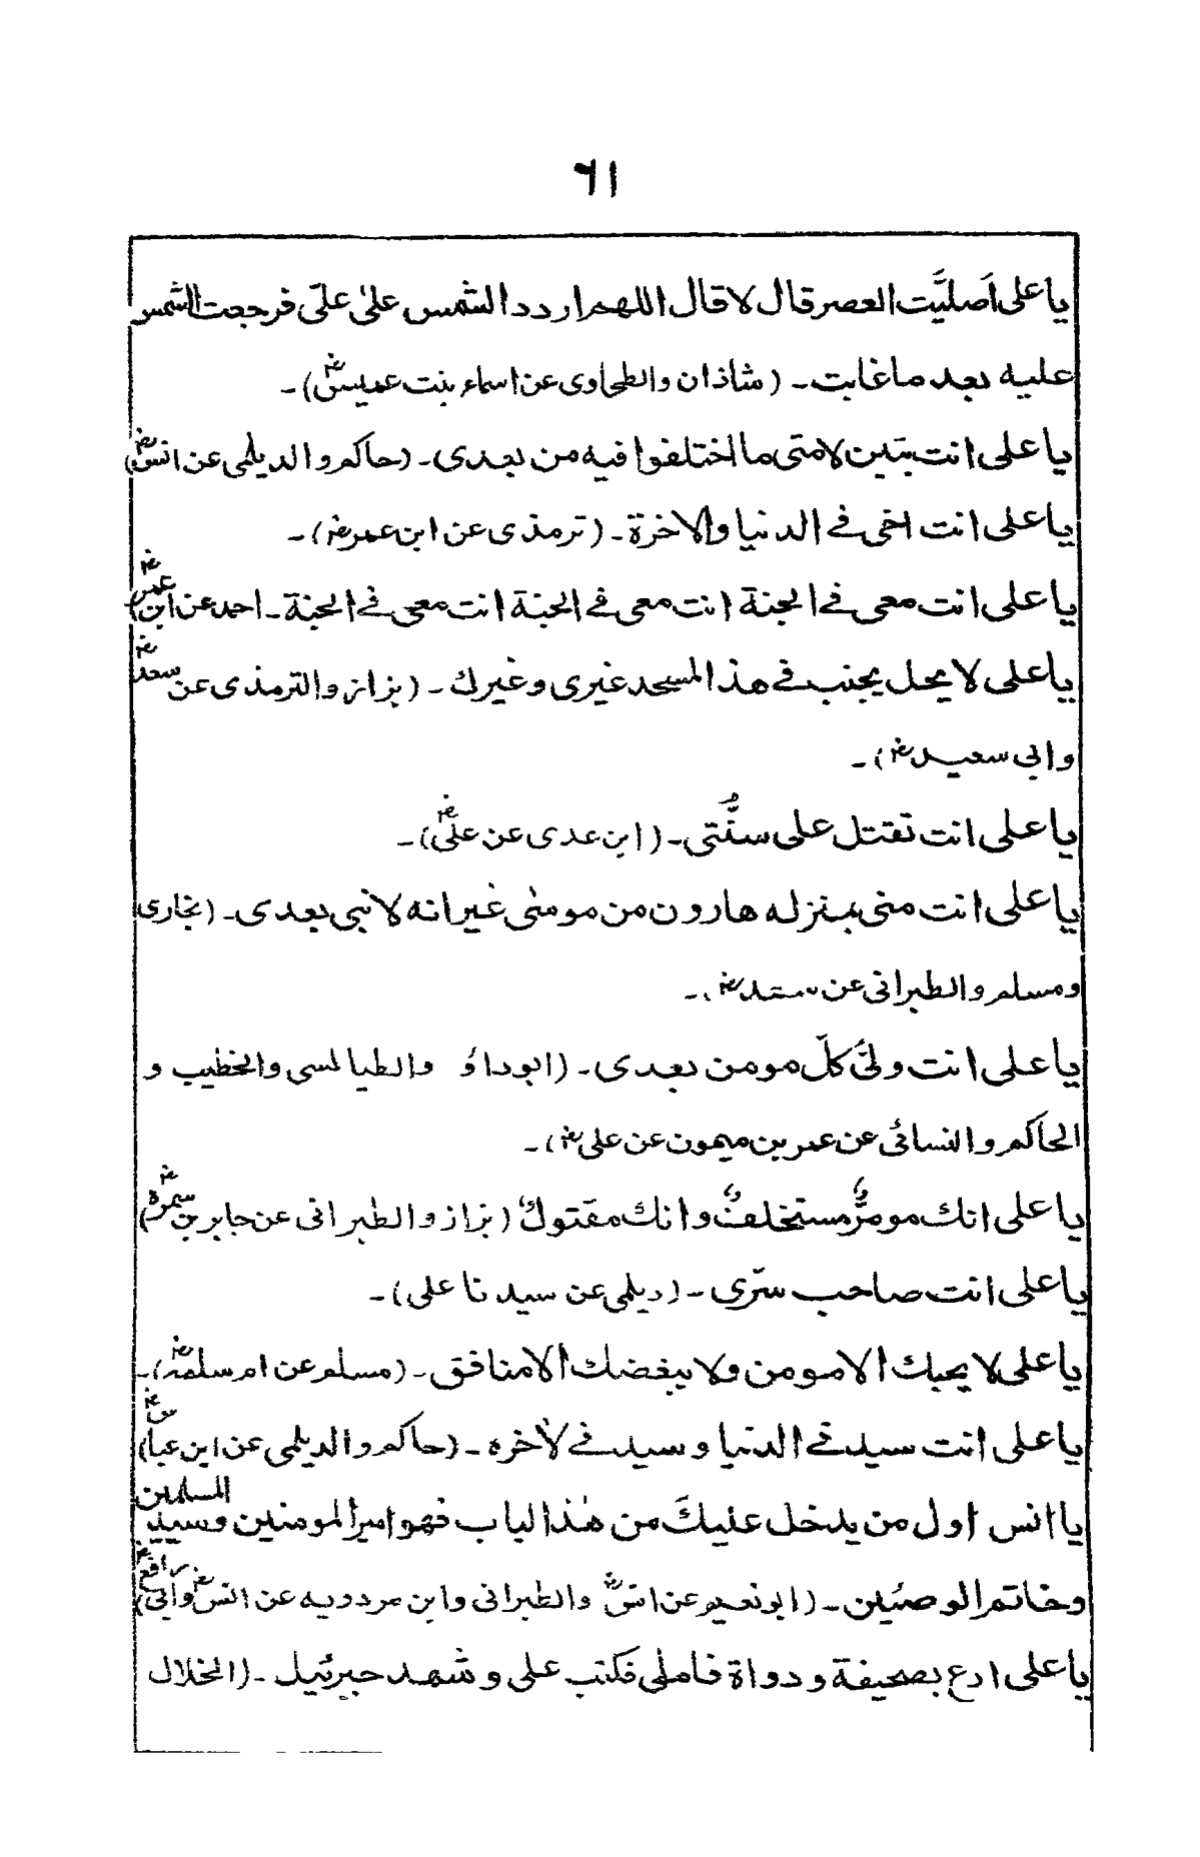 ٦١
يا على اَصليَّت العصر قال لا قال اللهم اردد الشمس علىٰ علىّ فرجعت الشمس
عليه بعد ما غابت ـ (شاذان والطحاوى عن اسماء بنت عميسؓ) ـ
يا على انت تبيّن لامتى ما اختلفوا فيه من بعدى ـ (حاكم والديلمى عن انسؓ)
يا على انت اخى فى الدنيا والاخرة ـ (ترمذى عن ابن عمرؓ) ـ
يا على انت معى فى الجنة انت معى فى الجنة انت معى فى الجنة ـ احمد عن ابن عمرؓ)
يا على لا يحل يجنب فى هذا المسجد غيرى وغيرك ـ (بزاز والترمذى عن سعدؓ
وابى سعيدؓ) ـ
يا على انت تقتل على سنَّتى ـ (ابن عدى عن علىؓ) ـ
يا على انت منى بمنزله هارون من موسٰى غير انه لا نبى بعدى ـ (بخارى
ومسلم والطبرانى عن سعدؓ) ـ
يا على انت ولىُّ كلّ مومن بعدى ـ (ابوداؤ والطيالسى والخطيب و
الحاكم والنسائى عن عمر بن ميمون عن علىؓ) ـ
يا على انك مومرٌّ مستخلفٌ وانك مقتولٌ (بزاز والطبرانى عن جابر بن سمرةؓ)
يا على انت صاحب سرّى ـ (ديلمى عن سيدنا على) ـ
يا على لا يحبك الا مومن ولا يبغضك الا منافق ـ (مسلم عن ام سلمهؓ) ـ
يا على انت سيد فى الدنيا وسيد فى لأخره ـ (حاكم والديلمى عن ابن عباسؓ)
يا انس اول من يدخل عليكَ من هٰذا الباب فهو امير المومنين وسيد المسلمين
وخاتم الوصئين ـ (ابو نعيم عن انسؓ والطبرانى وابن مردويه عن انسؓ وابى رافعؓ)
يا على ادع بصحيفة ودواة فاملى فكتب على وشهد جبرئيل ـ (الخلال